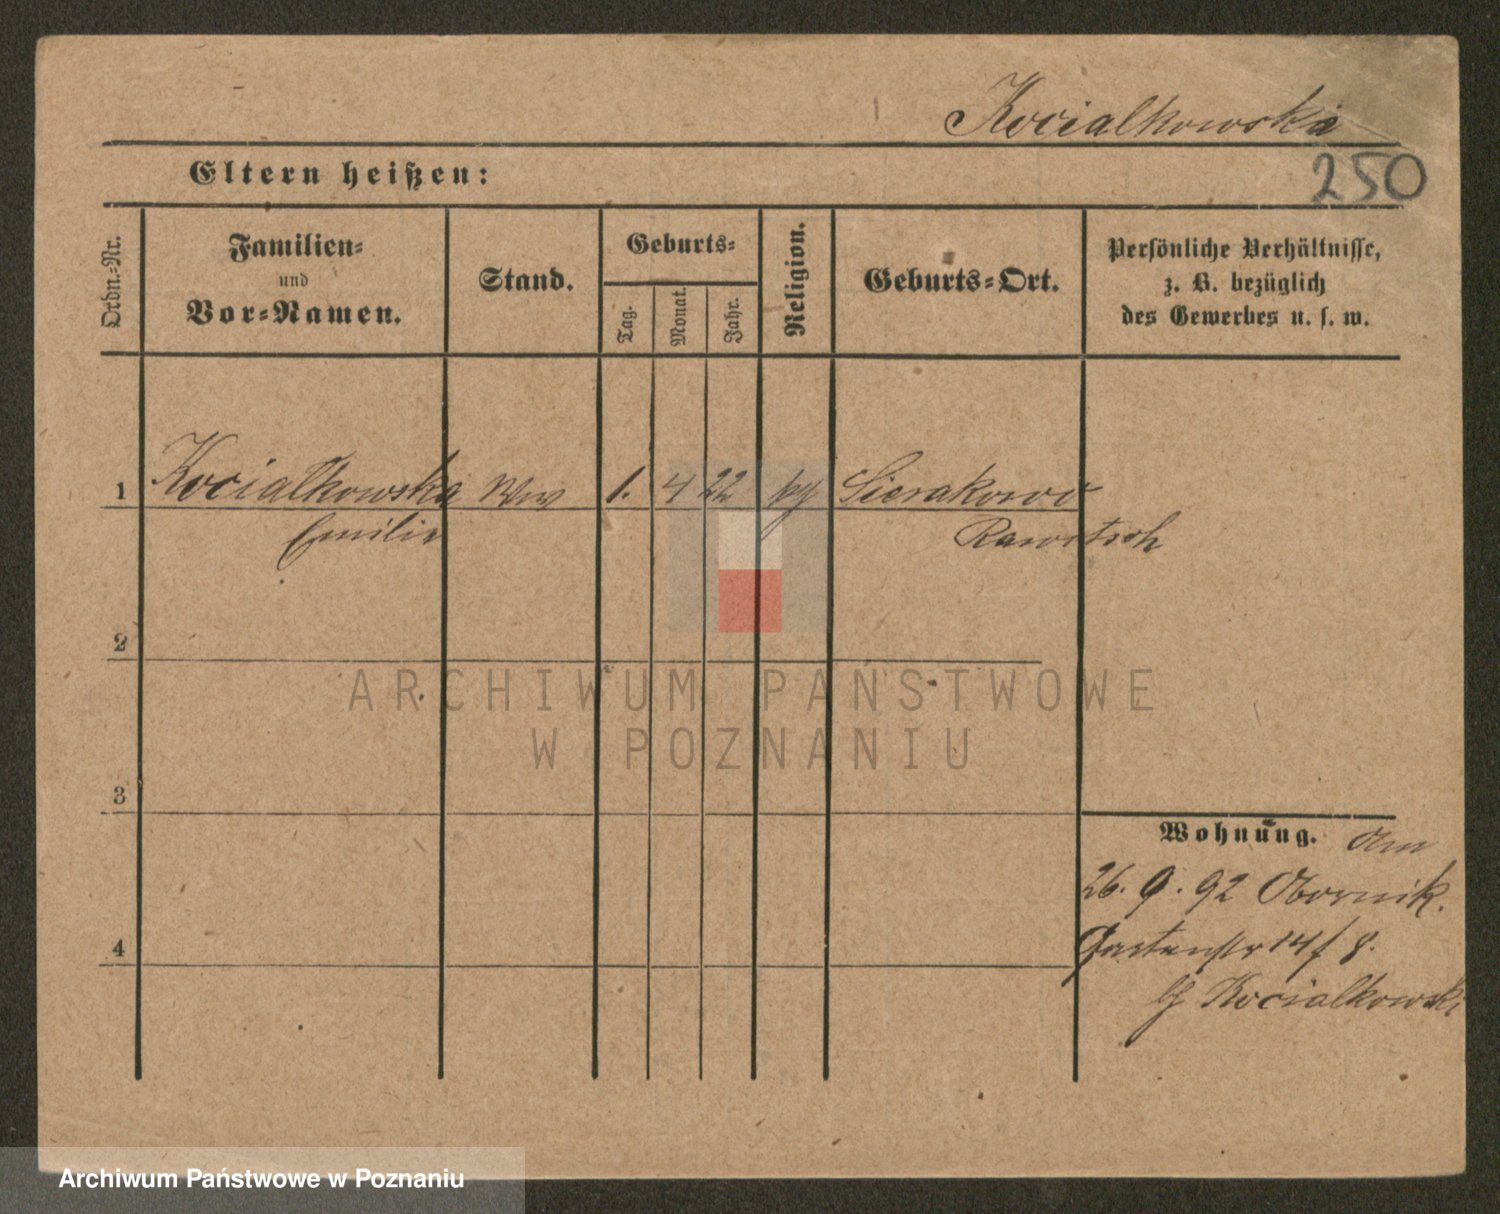 Kocialkowska
250
Eltern heißen:
Ordn.-Nr.
Familien-
und
Vor-Namen.
Stand.
Geburts-
Tag.
Monat.
Jahr.
Religion.
Geburts-Ort.
Persönliche Verhältnisse,
z. B. bezüglich
des Gewerbes u. s. w.
1 Kocialkowska Ww 1. 4 22 Sierakowo
Emilie Rawitsch
2
ARCHIWUM PAŃSTWOWE
W POZNANIU
3
Wohnung. Am
26. 9. 92 Obornik.
4 Gartenstr 14/ 8.
Kocialkowski
Archiwum Państwowe w Poznaniu